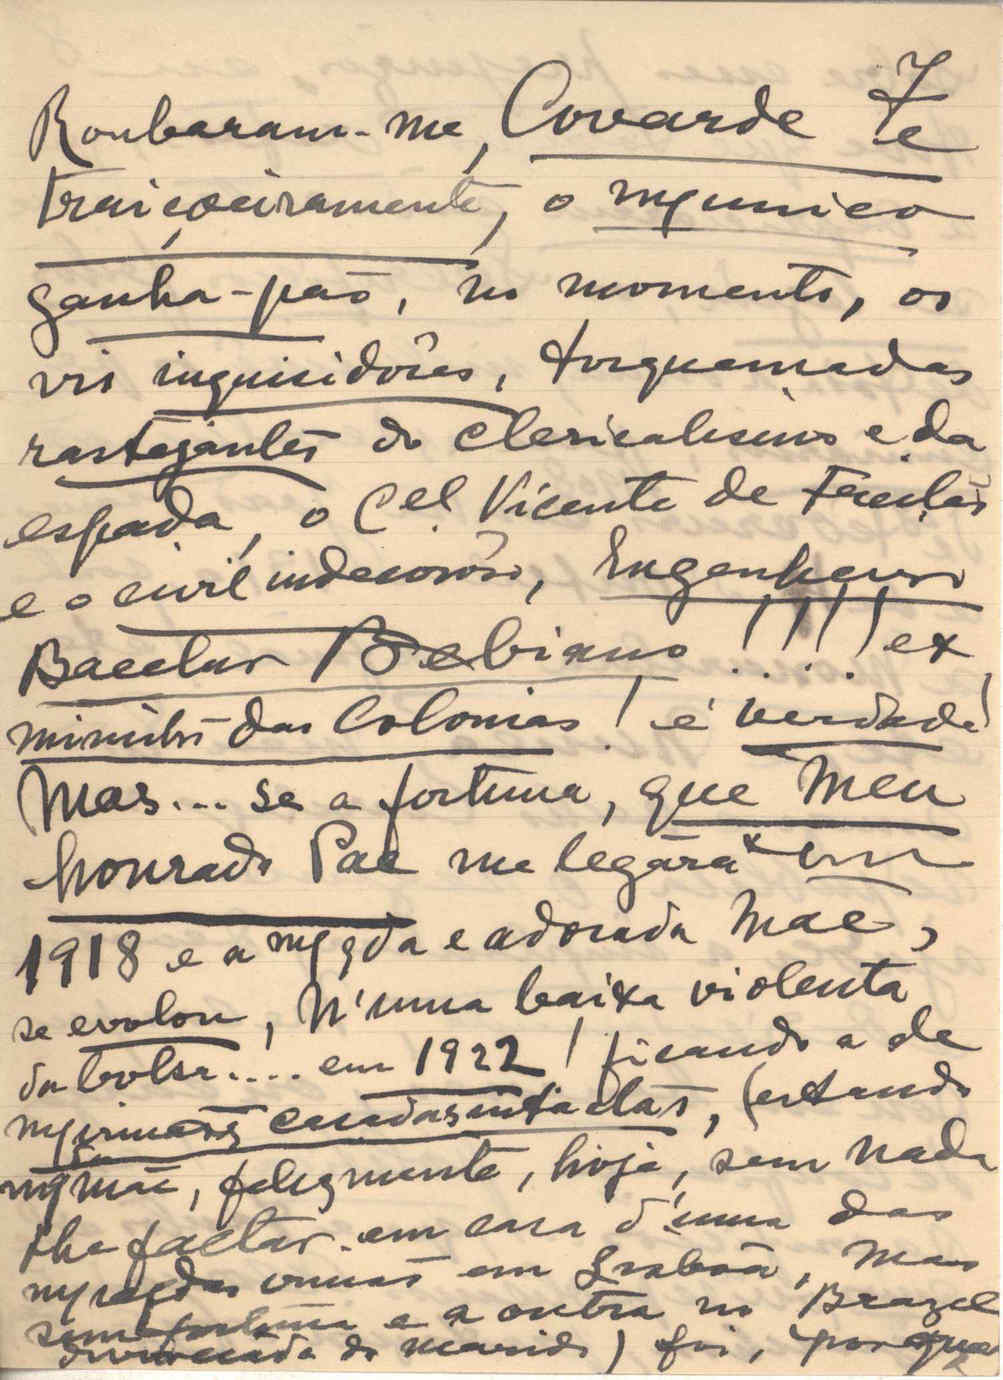 7
Roubaram-me, Covarde e
traiçoeiramente, o meu unico
ganha-pão, no momento, os
vis inquisidôres, torquemadas
rastejantes do clericalismo e da
espada, o Cel Vicente de Freitas
e o civil indecorôso, Engenheiro
Bacelar Bebiano !!!! ex
ministro das Colonias! é verdade!
Mas... se a fortuna, que meu
honrado Pae me legára em
1918 e a mg qda e adorada Mãe,
se evolou, n'uma baixa violenta
da bolsa.... em 1922! ficando a de
mg irmãs casadas intactas, (estando
mg mãe, felizmente, hoje, sem nada
lhe faltar em casa d'uma das
mg qdas irmãs em Lisbôa, mas
sem fortuna e a outra no Brazil
divorciada do marido) foi, porque